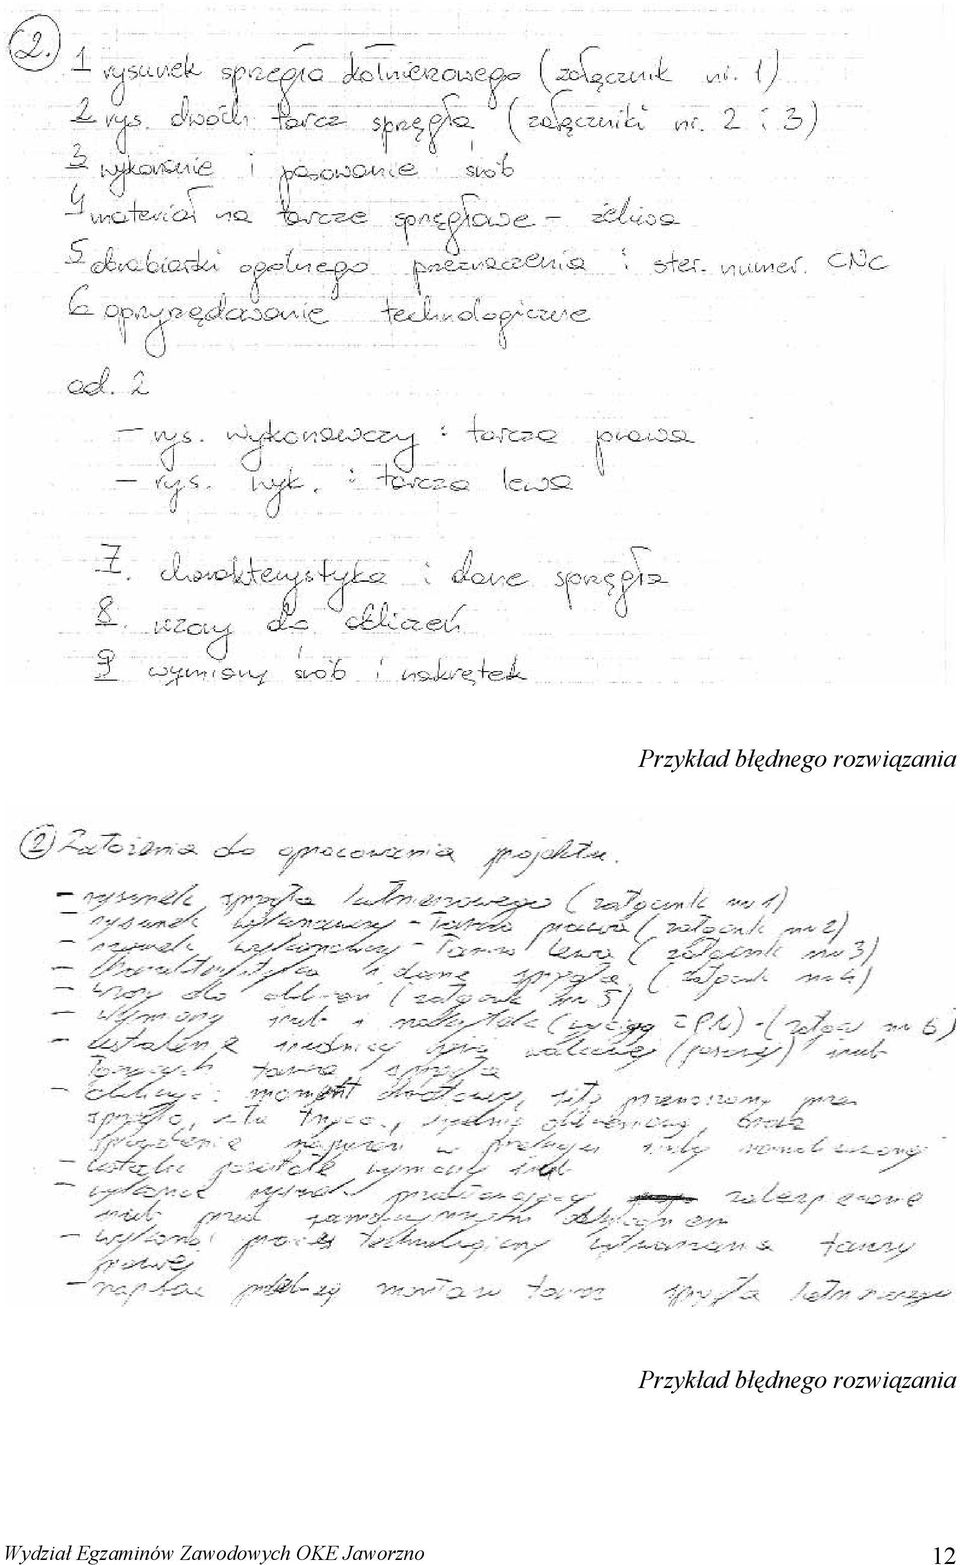 2. 1 rysunek sprzęgła kołnierzowego (załącznik nr. 1)
2 rys. dwóch tarcz sprzęgła (załączniki nr. 2 i 3)
3 wykonanie i pasowanie śrub
4 materiał na tarcze sprzęgłowe – żeliwo
5 obrabiarki ogólnego przeznaczenia i ster. numer. CNC
6 oprzyrządowanie technologiczne
ad. 2
– rys. wykonawczy : tarcza prawa
– rys. wyk. : tarcza lewa
7. charakterystyka i dane sprzęgła
8. wzory do obliczeń
9 wymiary śrub i nakrętek
Przykład błędnego rozwiązania
② Założenia do opracowania projektu.
– rysunek sprzęgła kołnierzowego (załącznik nr 1)
– rysunek wykonawczy – Tarcza prawa (załącznik nr 2)
– rysunek wykonawczy – Tarcza lewa (załącznik nr 3)
– Charakterystyka i dane sprzęgła (załącznik nr 4)
– wzory do obliczeń (załącznik nr 5)
– wymiary śrub i nakrętek (wyciąg z PN) – (załącz nr 6)
– ustalenie średnicy części walcowej śrub
łączących tarcze sprzęgła
– obliczyć: moment obrotowy, siłę przenoszoną przez
sprzęgło, siłę tnącą,
– ustalić pozostałe wymiary śrub
– wykonać rysunek przedstawiający zabezpieczone
śrub przed samoczynnym odkręceniem
– wykonać proces technologiczny wykonania tarczy
prawej
– napisać przebieg montażu tarcz sprzęgła kołnierzowego
Przykład błędnego rozwiązania
Wydział Egzaminów Zawodowych OKE Jaworzno 12